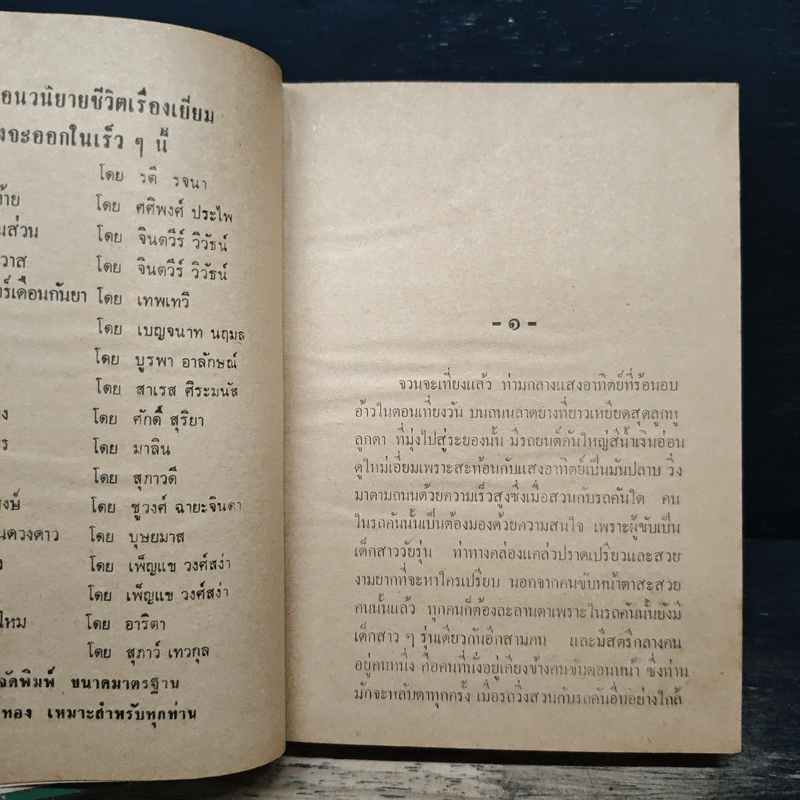 อนวนิยายชีวิตเรื่องเยี่ยม
งจะออกในเร็ว ๆ นี้
โดย รตี รจนา
ท้าย โดย ศศิพงศ์ ประไพ
นส่วน โดย จินตวีร์ วิวัธน์
วาส โดย จินตวีร์ วิวัธน์
ทร์เดือนกันยา โดย เทพเทวี
โดย เบญจนาท นฤมล
โดย บูรพา อาลักษณ์
โดย สาเรส ศิระมนัส
ง โดย ศักดิ์ สุริยา
ร โดย มาลิน
โดย สุภาวดี
งษ์ โดย ชูวงศ์ ฉายะจินดา
นดวงดาว โดย บุษยมาส
ง โดย เพ็ญแข วงศ์สง่า
โดย เพ็ญแข วงศ์สง่า
ไหม โดย อาริตา
โดย สุภาว์ เทวกุล
จัดพิมพ์ ขนาดมาตรฐาน
ทอง เหมาะสำหรับทุกท่าน
- ๑ -
จวนจะเที่ยงแล้ว ท่ามกลางแสงอาทิตย์ที่ร้อนอบ
อ้าวในตอนเที่ยงวัน บนถนนลาดยางที่ยาวเหยียดสุดลูกหู
ลูกตา ที่มุ่งไปสู่ระยองนั้น มีรถยนต์คันใหญ่สีน้ำเงินอ่อน
ดูใหม่เอี่ยมเพราะสะท้อนกับแสงอาทิตย์เป็นมันปลาบ วิ่ง
มาตามถนนด้วยความเร็วสูงซึ่งเมื่อสวนกับรถคันใด คน
ในรถคันนั้นเป็นต้องมองด้วยความสนใจ เพราะผู้ขับเป็น
เด็กสาววัยรุ่น ท่าทางคล่องแคล่วปราดเปรียวและสวย
งามยากที่จะหาใครเปรียบ นอกจากคนขับหน้าตาสะสวย
คนนั้นแล้ว ทุกคนก็ต้องละลานตาเพราะในรถคันนั้นยังมี
เด็กสาว ๆ รุ่นเดียวกันอีกสามคน และมีสตรีกลางคน
อยู่คนหนึ่ง คือคนที่นั่งอยู่เคียงข้างคนขับตอนหน้า ซึ่งท่าน
มักจะหลับตาทุกครั้ง เมื่อรถวิ่งสวนกับรถคันอื่นอย่างใกล้